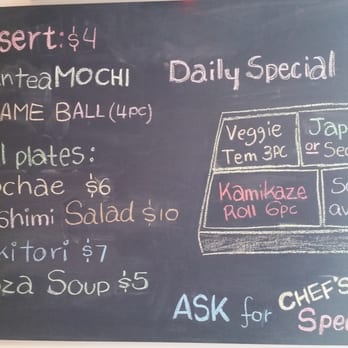 sert: $4
ntea MOCHI
AME BALL (4pc)
l plates:
chae $6
shimi Salad $10
kitori $7
za Soup $5
Daily Special
Veggie
Tem 3PC
Jap
or Sea
Kamikaze
Roll 6pc
av
ASK for CHEF'S
Spe